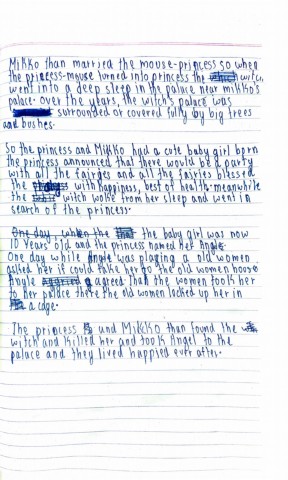 Mikko than married the mouse-princess so when
the princess-mouse turned into princess the witch,
went into a deep sleep in the palace near mikko's
palace. Over the years, the witch's palace was
surrounded or covered fully by big trees
and bushes.
So the princess and Mikko had a cute baby girl born
the princess announced that there would be a party
with all the fairges and all the fairies blessed
the with happiness, best of health. meanwhile
the witch woke from her sleep and went in
search of the princess.
One day, when the the baby girl was now
10 years old and the princess named her Angle.
One day while Angle was playing a old women
asked her if could take her to the old women house
Angle agreed than the women took her
to her palace there the old women locked up her in
a cage.
The princess and Mikko than found the
witch and killed her and took Angel to the
palace and they lived happied ever after.